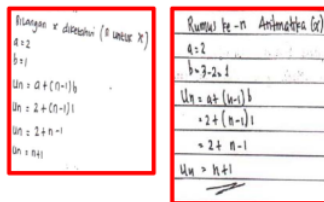 Bilangan x diketahui (a untuk x)
a = 2
b = 1
Un = a + (n-1)b
Un = 2 + (n-1)1
Un = 2 + n - 1
Un = n+1
Rumus ke-n Aritmatika (x)
a = 2
b = 3-2 = 1
Un = a + (n-1) b
= 2 + (n-1) 1
= 2 + n - 1
Un = n+1